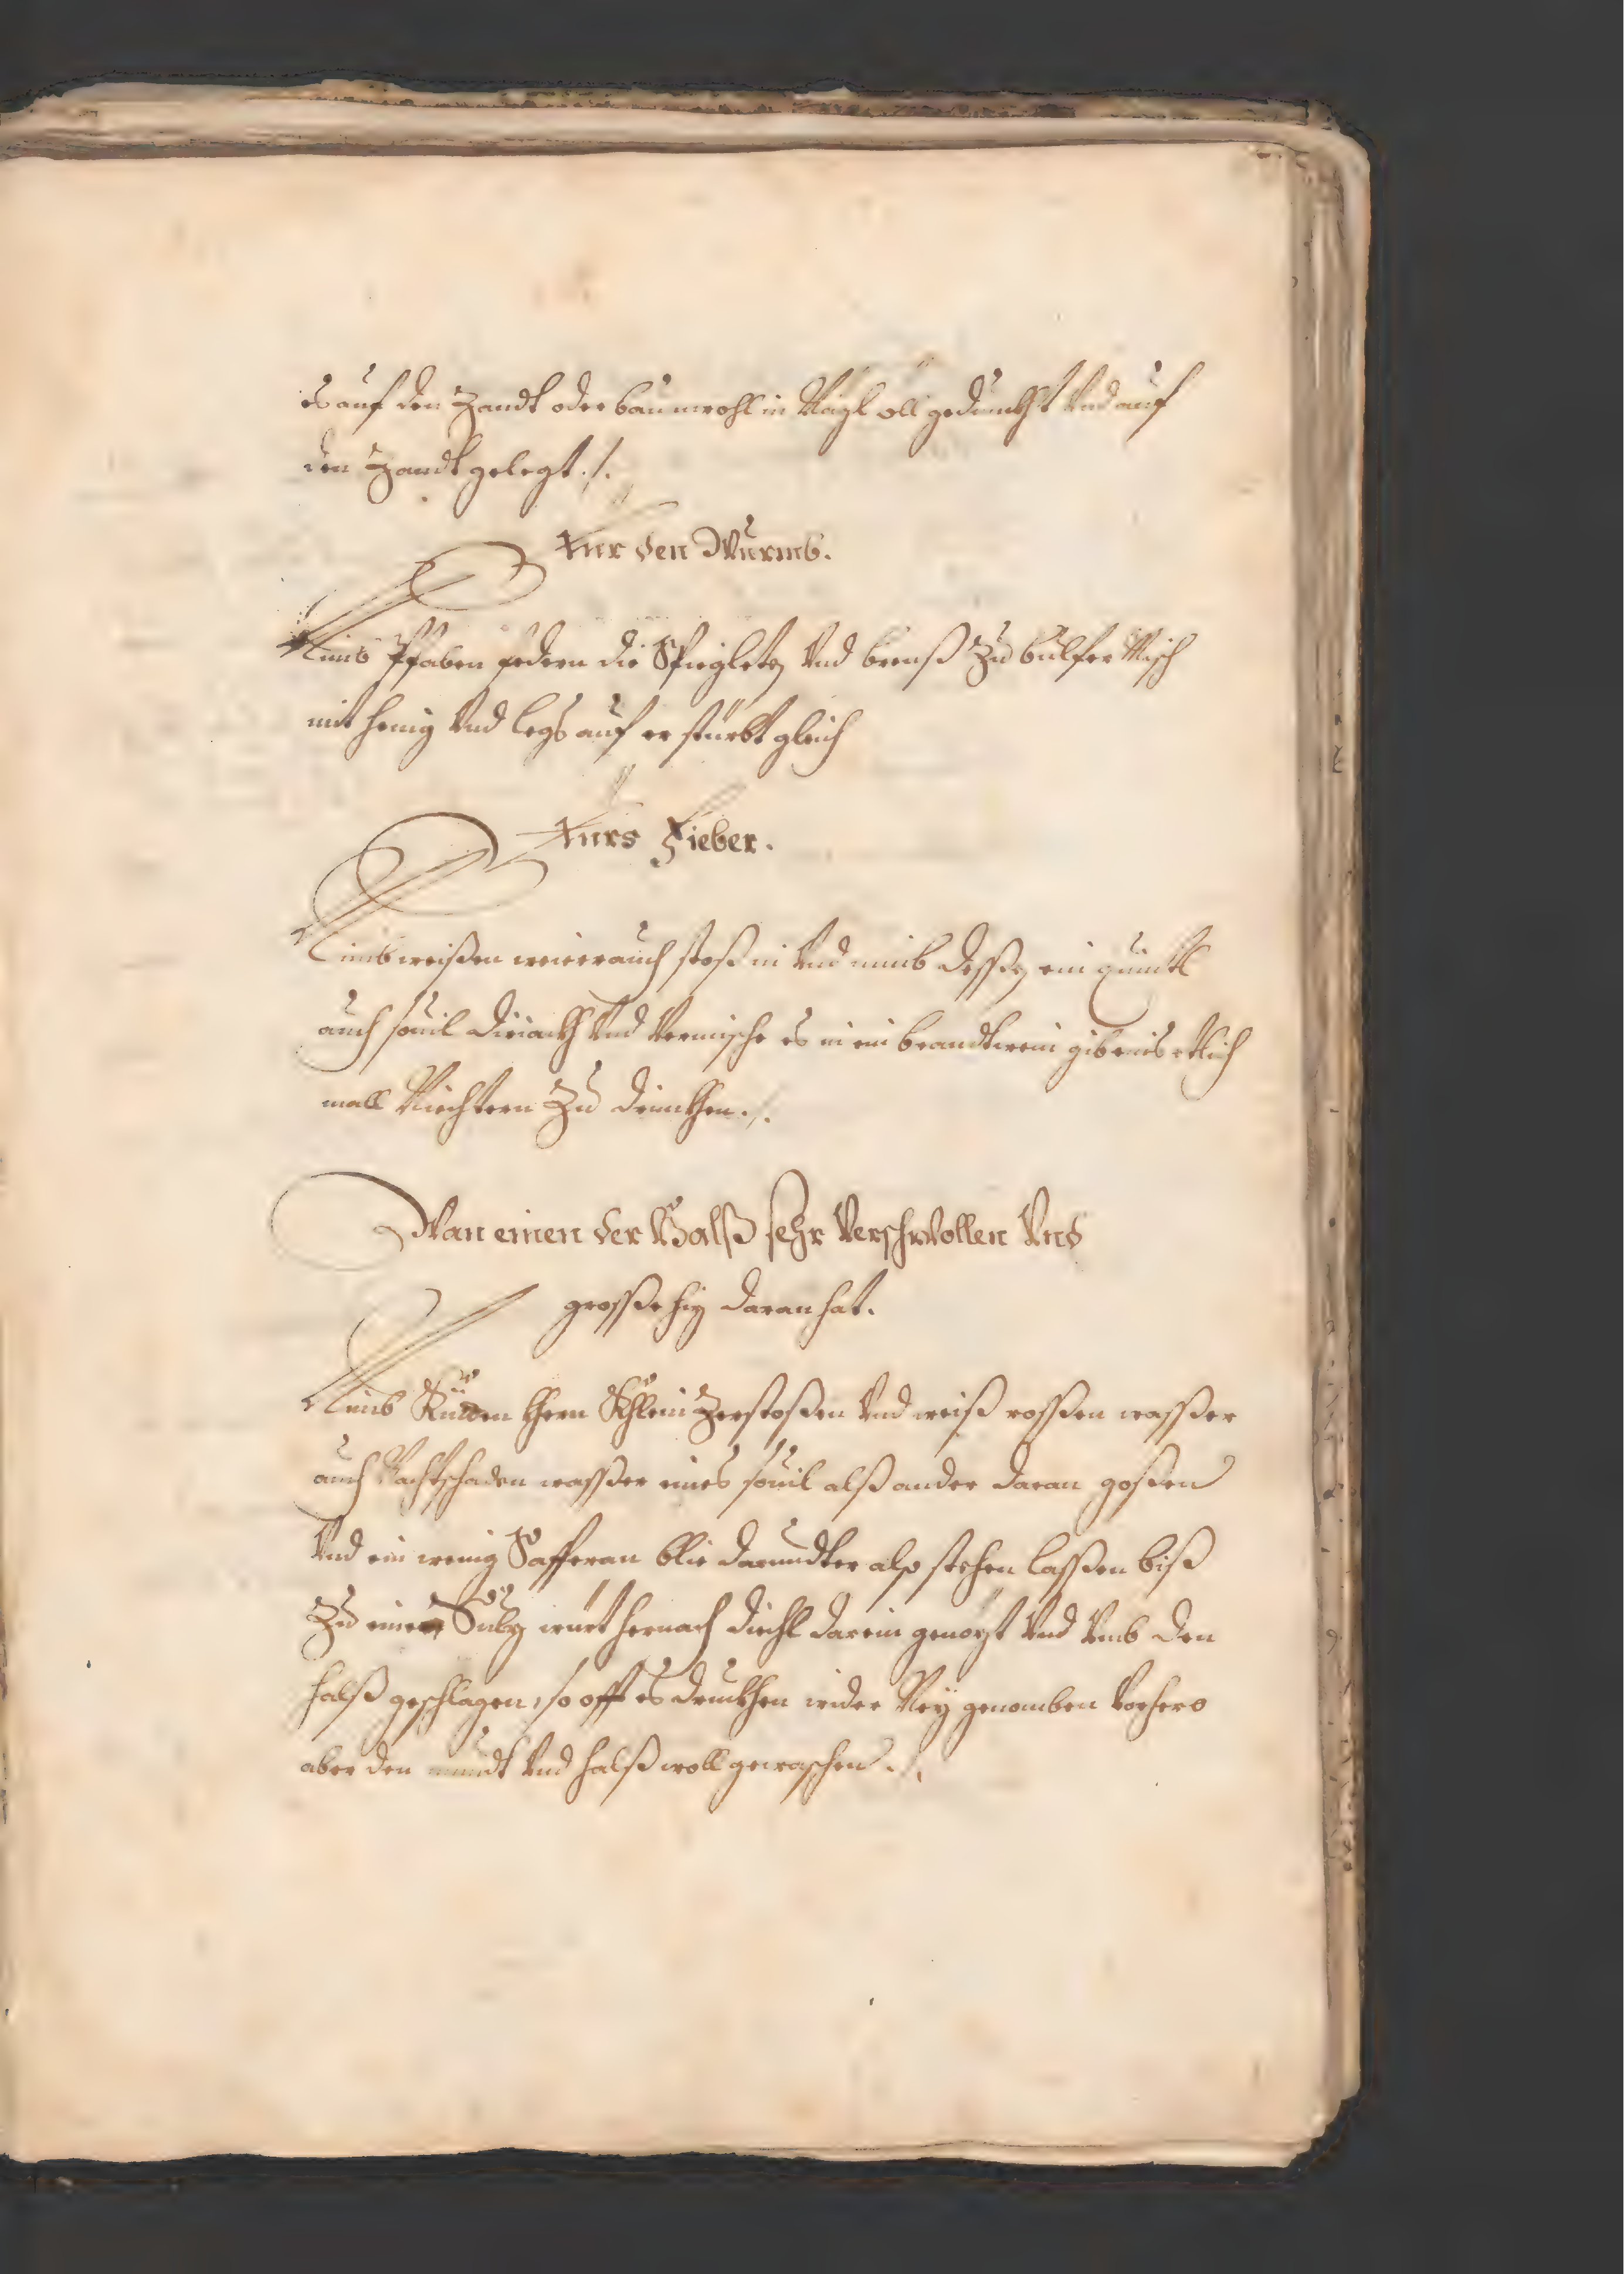 es auf den Zandt oder baumwohl in Nägl öll gedunckht Vnd auf
den Zandt gelegt ./.
Für den Wurmb.
Nimb Pfaben federn die Spiegleten Vnd brenß Zu bulfer Misch
mit henig Vnd legs auf er stürbt gleich
Fürs Fieber.
Nimb weißen weierauch stoß in Vnd nimb dessen ein quintl
auch souil diriackh Vnd Vermische es in ein brandtwein gib eins etlich
mall Niechtern Zu drinckhen ./.
Wan einen der Halß sehr Verschwollen Vnd
grosse hiz daran hat.
Nimb Kütten khern Khlein Zerstoßen Vnd weiß rossen wasser
auch Nachtschaden wasser eines souil alß ander daran goßen
Vnd ein wenig Safferan blie darundter also stehen lassen biß
Zu einer Sulz würt hernach diechl darein genözt Vnd Vmb den
halß geschlagen, so offt es druckhen wider Ney genomben Vorhero
aber den mundt Vnd halß woll gewaschen ./.